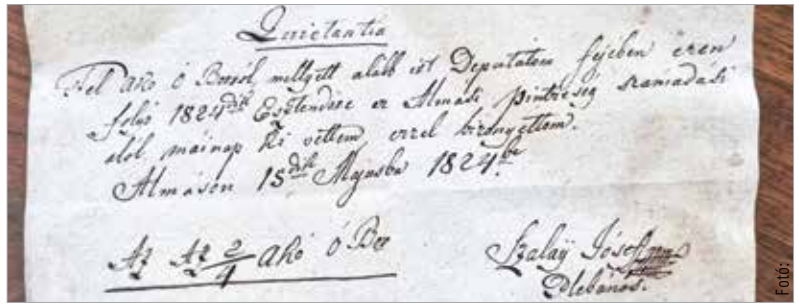 Quietantia
Fel Akó ó Borról mellyett alább irt Deputatom fejében ezen
folyó 1824dik Esztendőre az Almási pintzeség számadási
alól mainap ki vettem ezzel bizonyittom.
Almáson 15dik Májusba 1824be
Az Az 2/4 Akó ó Bor
Szalaÿ Jósef
Plebános.
Fotó: